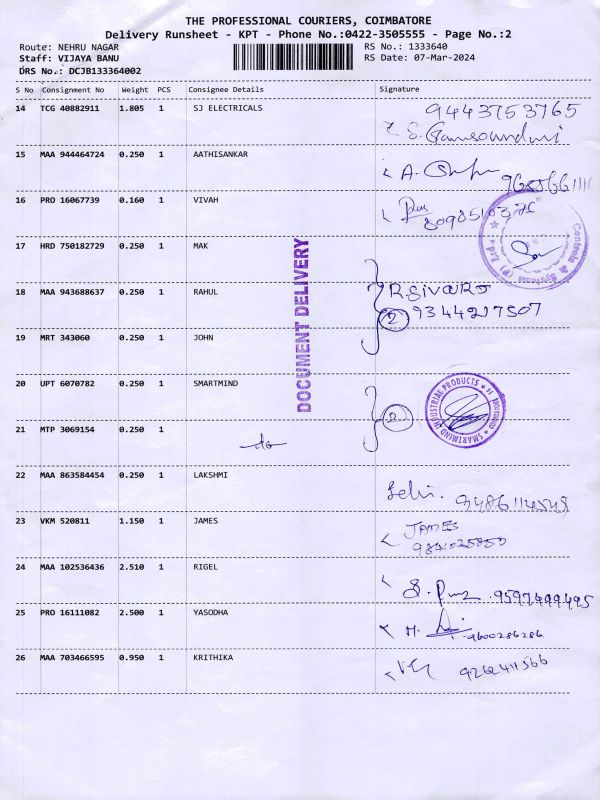 THE PROFESSIONAL COURIERS, COIMBATORE
Delivery Runsheet - KPT - Phone No.:0422-3505555 - Page No.:2
Route: NEHRU NAGAR
RS No.: 1333640
Staff: VIJAYA BANU
RS Date: 07-Mar-2024
DRS No.: DCJB133364002
S No Consignment No Weight PCS Consignee Details Signature
14 TCG 40882911 1.805 1 SJ ELECTRICALS 9443753765
15 MAA 944464724 0.250 1 AATHISANKAR
16 PRO 16067739 0.160 1 VIVAH
17 HRD 750182729 0.250 1 MAK
18 MAA 943688637 0.250 1 RAHUL R.SIVARAJ
2 9344217507
19 MRT 343060 0.250 1 JOHN
20 UPT 6070782 0.250 1 SMARTMIND 2
21 MTP 3069154 0.250 1
22 MAA 863584454 0.250 1 LAKSHMI
23 VKM 520811 1.150 1 JAMES JAMES
24 MAA 102536436 2.510 1 RIGEL 9597499495
25 PRO 16111082 2.500 1 YASODHA 9600286286
26 MAA 703466595 0.950 1 KRITHIKA 9262411566
DOCUMENT DELIVERY
Controls & Systems (P) Ltd
SMARTMIND INDUSTRIAL PRODUCTS